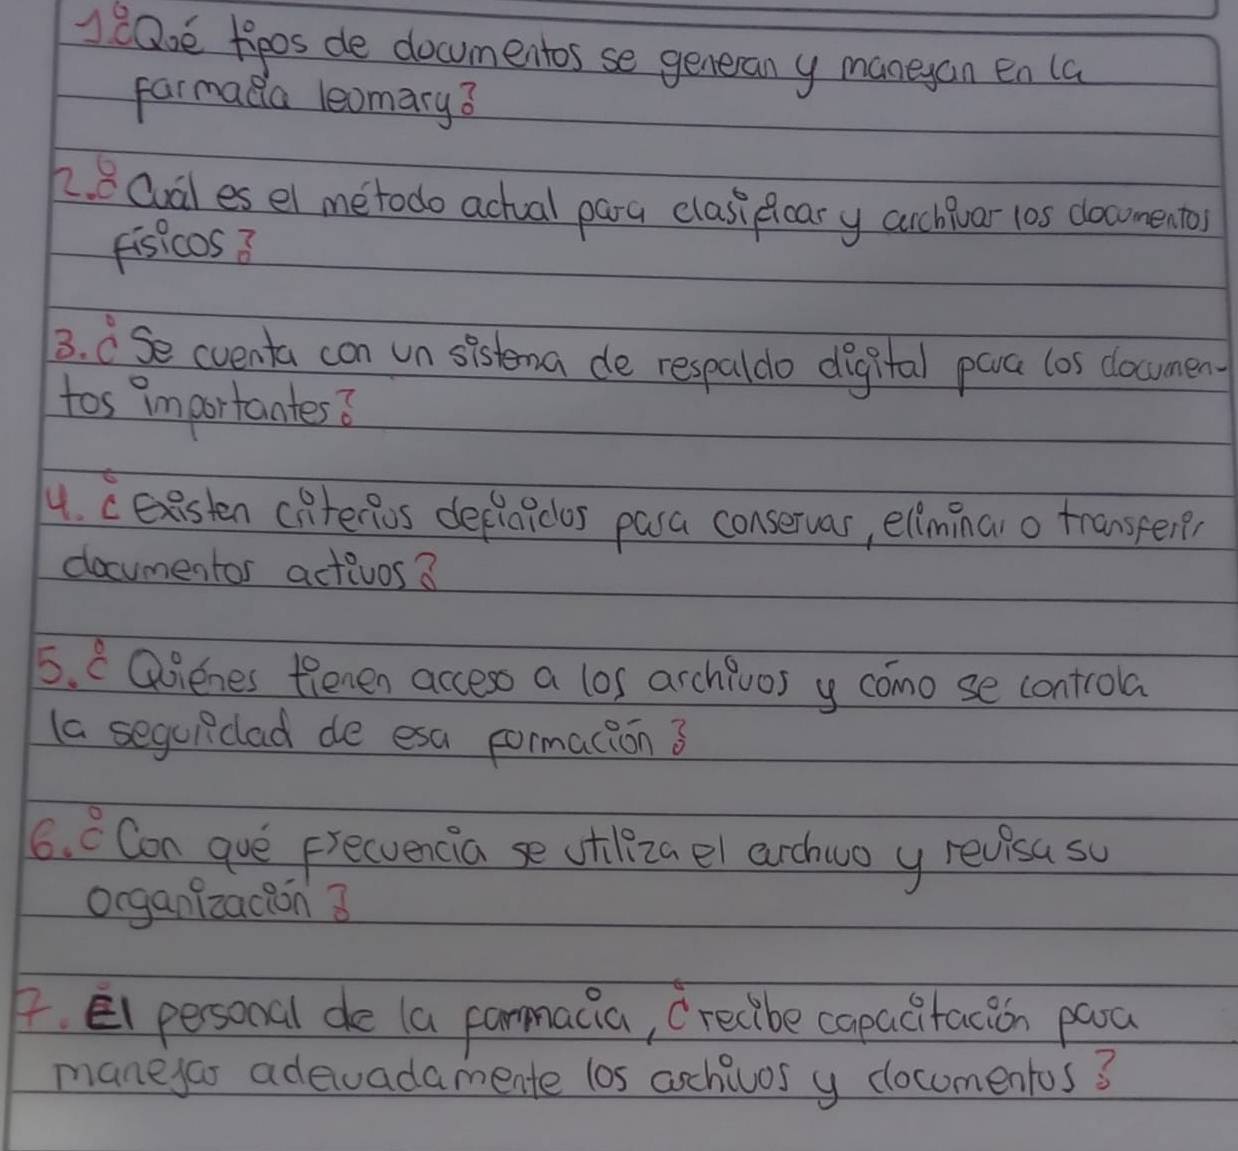 1. ¿Qué tipos de documentos se generan y manejan en la
farmacia leomary?
2. ¿Cuál es el método actual para clasificar y archivar los documentos
físicos?
3. ¿Se cuenta con un sistema de respaldo digital para los documen-
tos importantes?
4. ¿existen criterios definidos para conservar, eliminar o transferir
documentos activos?
5. ¿Quiénes tienen acceso a los archivos y cómo se controla
la seguridad de esa formación?
6. ¿Con qué frecuencia se utiliza el archivo y revisa su
organización?
7. El personal de la farmacia, ¿recibe capacitación para
manejar adecuadamente los archivos y documentos?